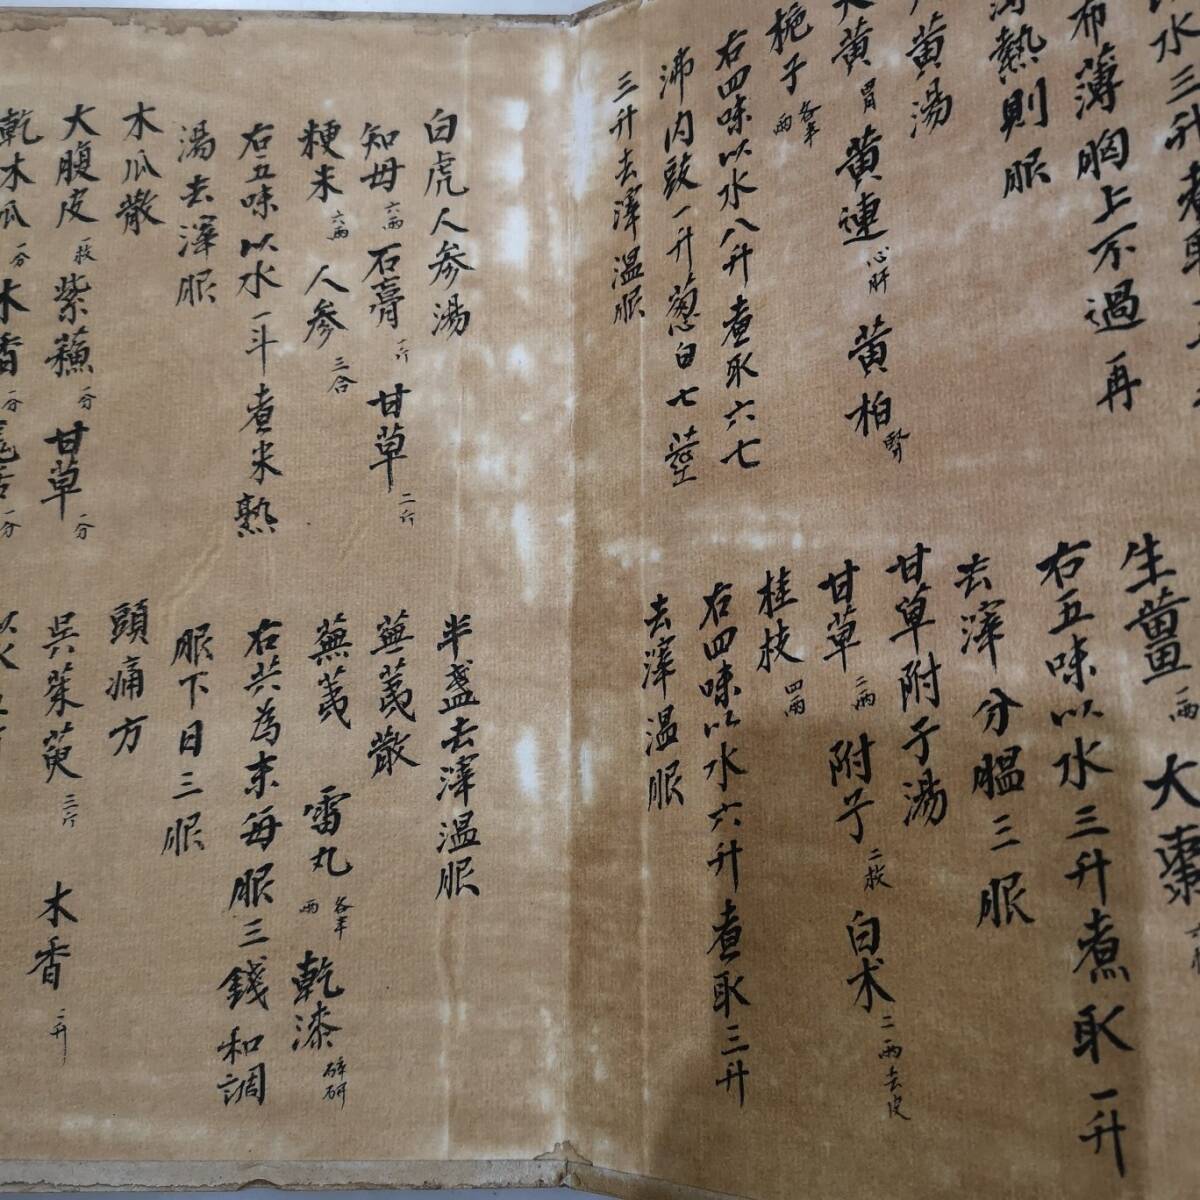 水三升煮取
布薄胸上不過再
熱則服
黄湯
黄 胃 黄連 心肝 黄柏 腎
梔子 各半兩
右四味以水八升煮取六七
沸内豉一升葱白七莖
三升去滓温服
生薑 一兩 大棗
右五味以水三升煮取一升
去滓分腽三服
甘草附子湯
甘草 二兩 附子 二枚 白术 二兩去皮
桂枝 四兩
右四味以水六升煮取三升
去滓温服
白虎人参湯
知母 六兩 石膏 一斤 甘草 二斤
粳米 六兩 人参 三合
右五味以水一斗煮米熟
湯去滓服
木瓜散
大腹皮 一枚 紫蘓 一分 甘草 一分
乾木瓜 一分 木香 一分
半盞去滓温服
蕪荑散
蕪荑 雷丸 各半兩 乾漆 碎研
右共為末每服三錢和調
服下日三服
頭痛方
吳茱萸 三斤 木香 二升